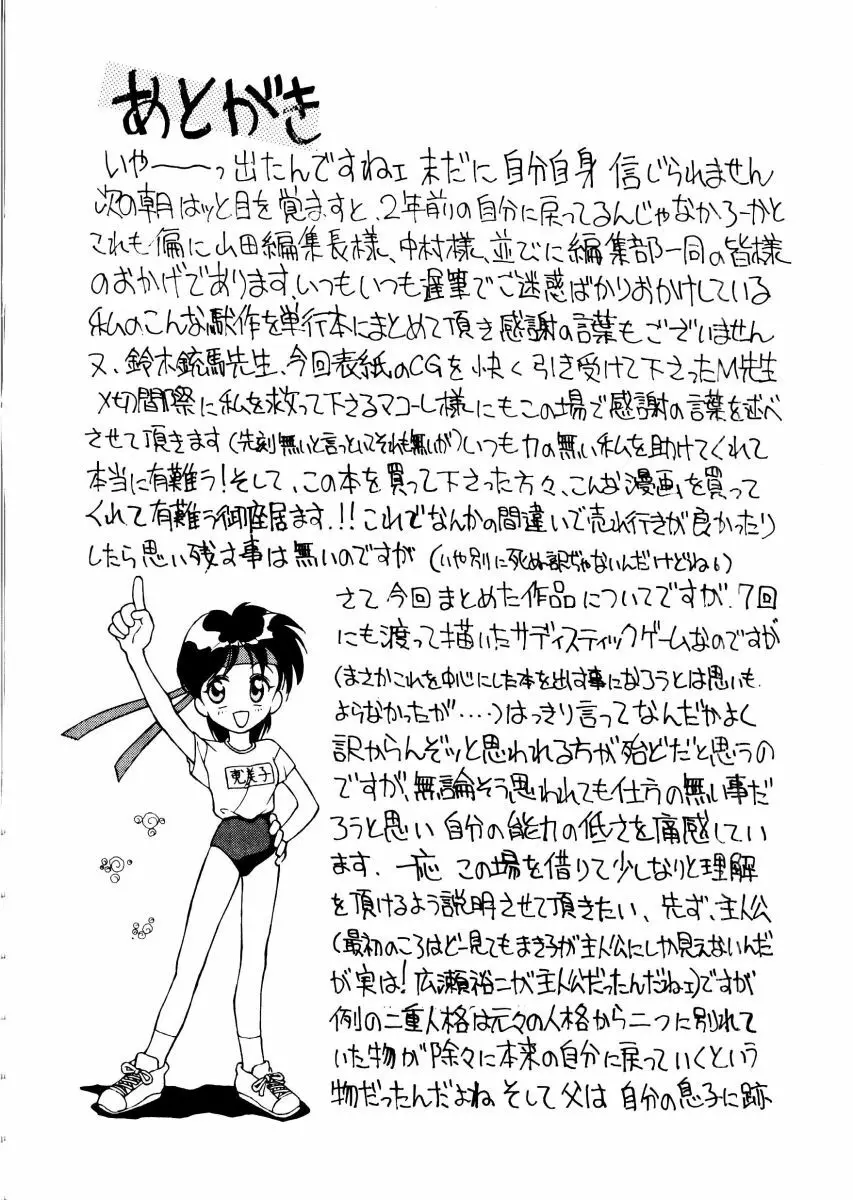 あとがき
いやーーっ出たんですねェ 未だに自分自身 信じられません
次の朝はッと目を覚ますと、2年前の自分に戻ってるんじゃなかろーかと
これも偏に山田編集長様、中村様、並びに編集部一同の皆様
のおかげであります、いつもいつも遅筆でご迷惑ばかりおかけしている
私のこんな駄作を単行本にまとめて頂き感謝の言葉もございません
又、鈴木銃馬先生、今回表紙のCGを快く引き受けて下さったM先生
〆切間際に私を救って下さるマコーレ様にもこの場で感謝の言葉を述べ
させて頂きます(先刻無いと言っといてそれも無いが)いつも力の無い私を助けてくれて
本当に有難う!そして、この本を買って下さった方々、こんな漫画を買って
くれて有難う御座居ます.!!これでなんかの間違いで売れ行きが良かったり
したら思い残す事は無いのですが(いや別に死ぬ訳ぢゃないんだけどね。)
さて今回まとめた作品についてですが.7回
にも渡って描いたサディスティックゲームなのですが
(まさかこれを中心にした本を出す事になろうとは思いも
よらなかったが・・・・)はっきり言ってなんだかよく
訳からんぞッと思われる方が殆どだと思うの
ですが、無論そう思われても仕方の無い事だ
ろうと思い 自分の能力の低さを痛感してい
ます. 一応 この場を借りて少しなりと理解
を頂けるよう説明させて頂きたい、先ず、主人公
(最初のころはどー見てもまき子が主人公にしか見えないんだ
が実は!広瀬裕二が主人公だったんだねェ)ですが
例の二重人格は元々の人格から二つに別れて
いた物が除々に本来の自分に戻っていくという
物だったんだよね そして父は 自分の息子に跡
恵美子